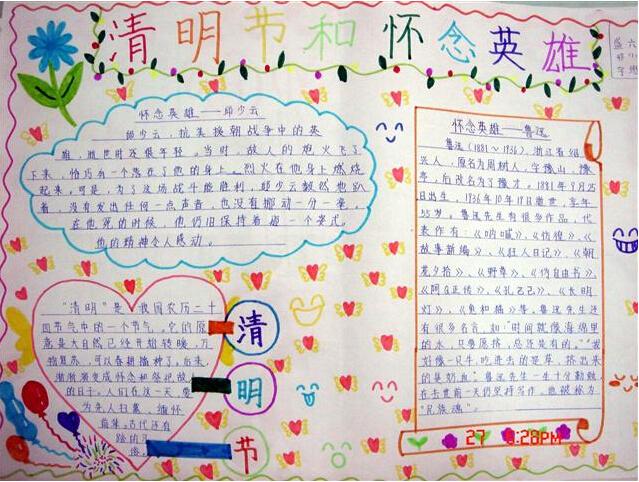 清明节和怀念英雄
怀念英雄——邱少云
邱少云,抗美援朝战争中的英
雄,逝世时还很年轻。当时,敌人的炮火飞了
下来,恰巧有一个落在了他的身上。烈火在他身上燃烧
起来。可是,为了这场战斗能胜利,邱少云毅然地趴
着,没有发出任何一点声音,也没有挪动一分一毫。
在他死的时候,他仍旧保持着这一个姿式。
他的精神令人感动。
怀念英雄——鲁迅
鲁迅(1881~1936),浙江省绍
兴人,原名为周树人,字豫山,豫
亭,后改名为字豫才。1881年9月25
日出生,1936年10月19日逝世,享年
55岁。鲁迅先生有很多作品,代
表作有:《呐喊》、《彷徨》、《
故事新编》、《狂人日记》、《朝
花夕拾》、《野草》、《伪自由书》、
《阿Q正传》、《孔乙己》、《长明
灯》、《兔和猫》等。鲁迅先生还
有很多名言,如:"时间就像海绵里
的水,只要愿挤,总还是有的。""我
好像一只牛,吃进去的是草,挤出来
的是奶血。"鲁迅先生一生十分勤敏,
在去世前一天仍坚持写作。他被称为
"民族魂"。
"清明"是我国农历二十
四节气中的一个节气。它的原
意是大自然已经开始转暖,万
物复苏,可以春耕播种了。后来,
渐渐演变成怀念和祭祀故
的日子。人们在这一天,要
为亲人扫墓、缅怀
古代还有
清
明
节
27 6:28PM